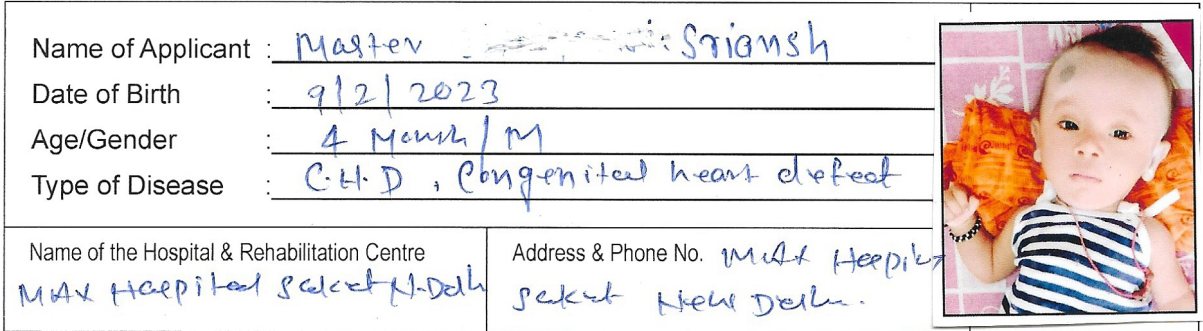 Name of Applicant : Master Sriansh
Date of Birth : 9/2/2023
Age/Gender : 4 Month / M
Type of Disease : C.H.D , Congenital heart defect
Name of the Hospital & Rehabilitation Centre
MAX Hospital Saket N.Delh
Address & Phone No. MAX Hospit
Saket New Delhi.